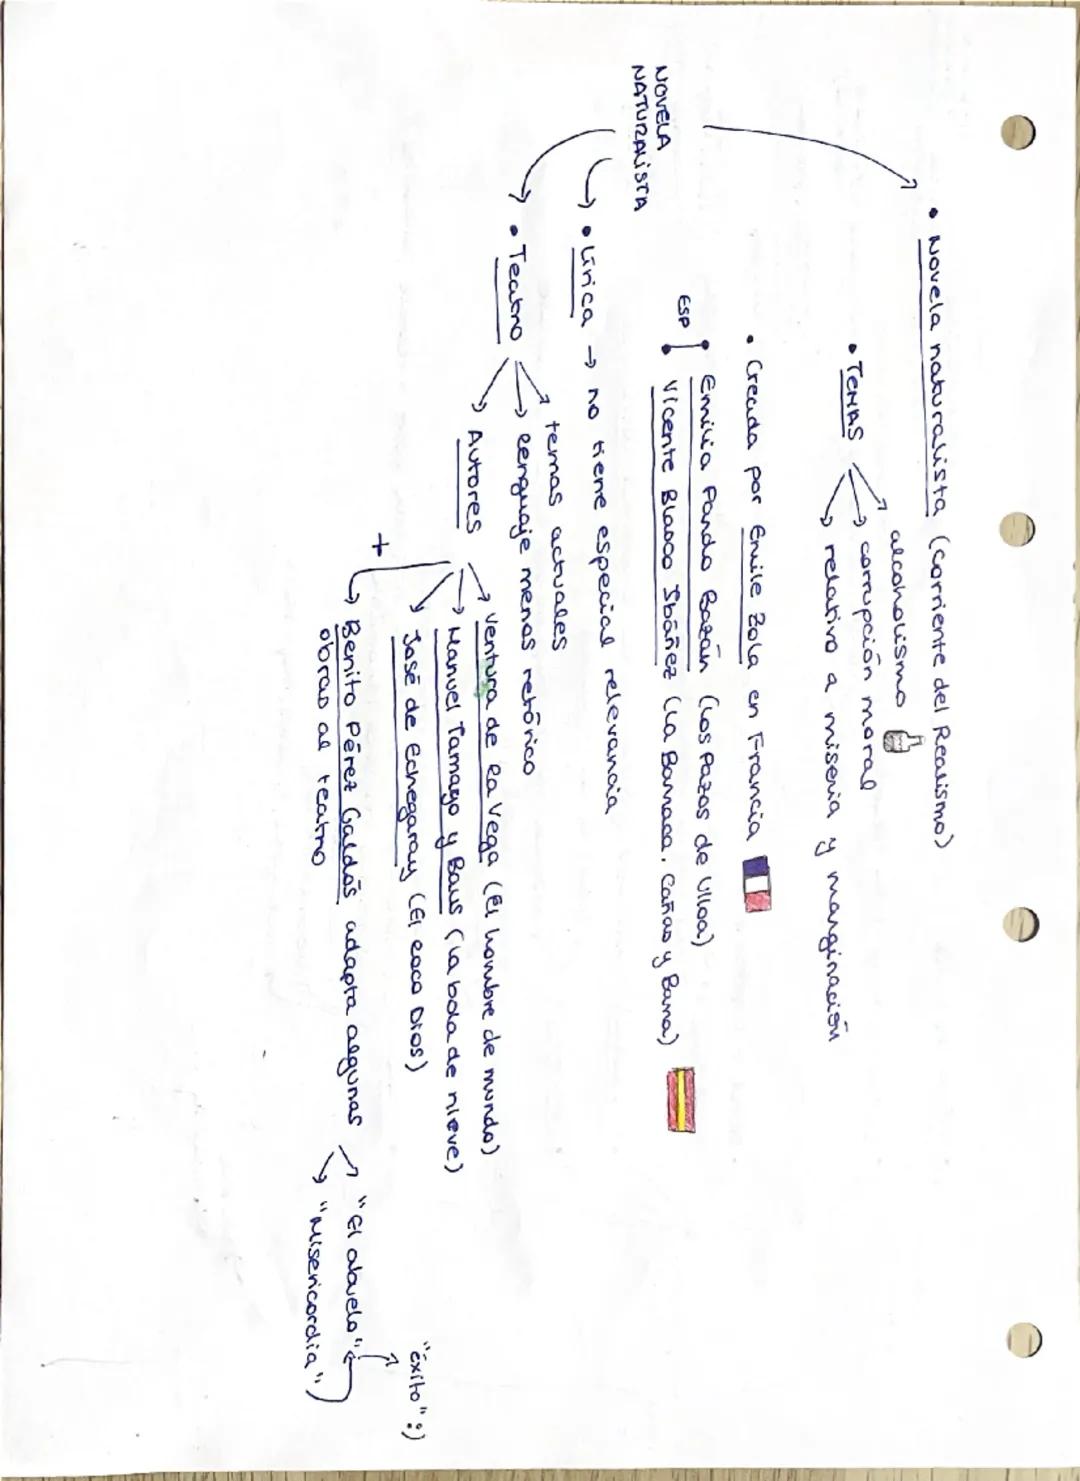 • Novela naturalista (corriente del Realismo)
• TEMAS
alcoholismo
corrupción moral
relativo a miseria y marginación
• Creada por Émile Zola en Francia
NOVELA
NATURALISTA
ESP
• Emilia Pardo Bazán (Los Pazos de Ulloa)
• Vicente Blasco Ibáñez (La Barraca, Cañas y Barna)
• Lírica → no tiene especial relevancia
• Teatro
temas actuales
lenguaje menos retórico
Autores
Ventura de la Vega (El hombre de mundo)
Manuel Tamayo y Baus (La bola de nieve)
José de Echegaray (El loco Dios)
+
Benito Pérez Galdós adapta algunas
obras al teatro
"El abuelo"
"Misericordia"
"éxito" :)